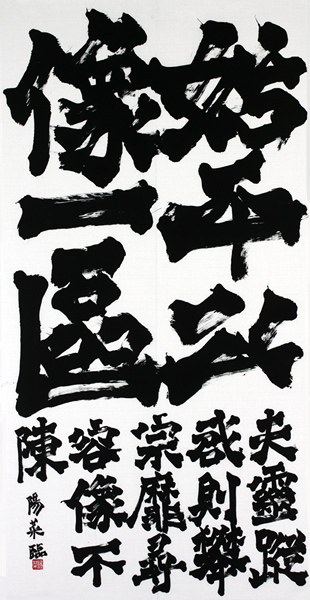 始平公
像一區
夫靈蹤
則攀
宗靡尋
容像不
陳
陽菜臨